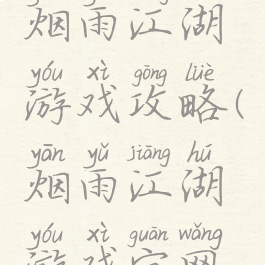 烟雨江湖
yóu xì gōng lüè
游戏攻略(
yān yǔ jiāng hú
烟雨江湖
yóu xì guān wǎng
游戏官网